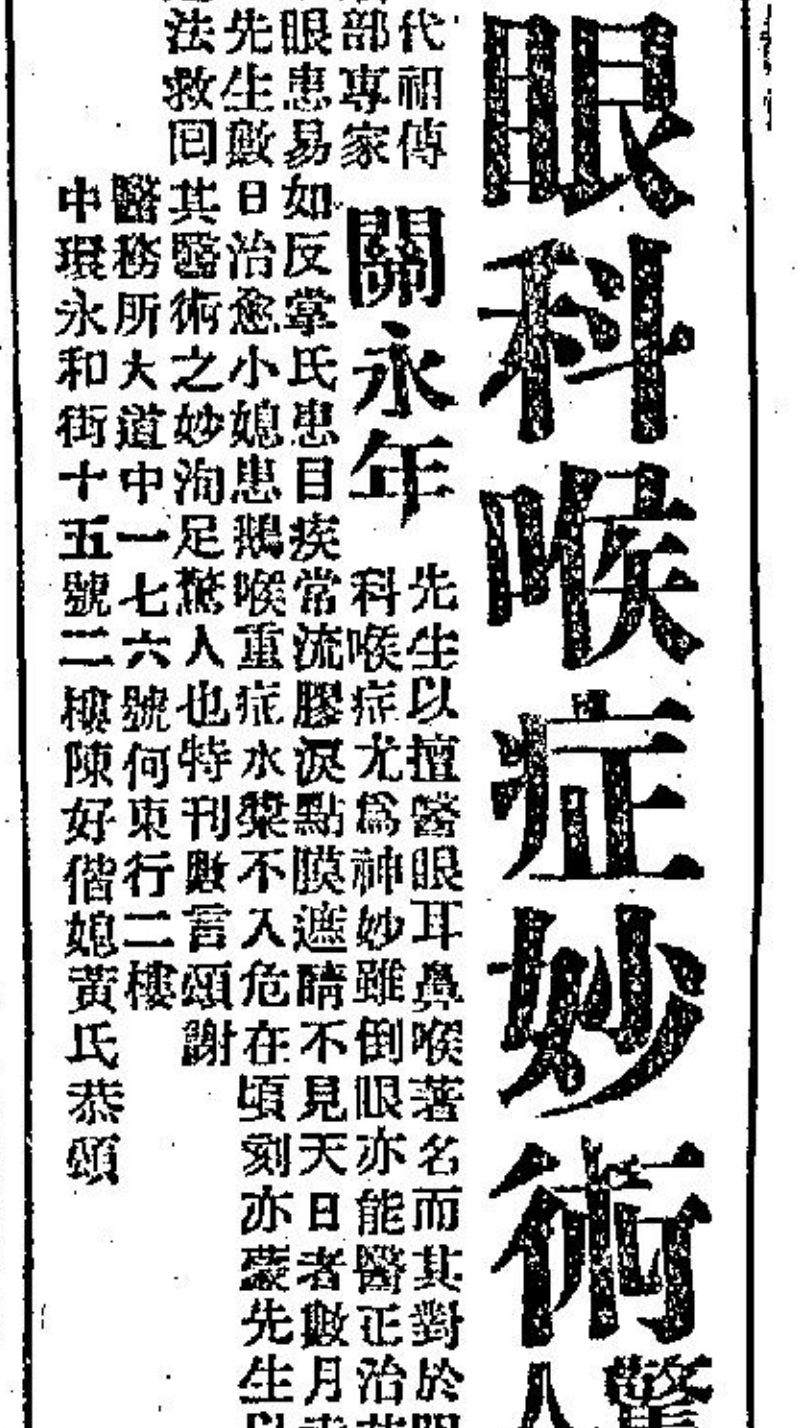 眼科喉症妙術驚人
代祖傳
部專家
關永年
先生以擅醫眼耳鼻喉著名而其對於眼
科喉症尤爲神妙雖倒眼亦能醫正治
眼患易如反掌氏患目疾常流膠淚點膜遮睛不見天日者數月
先生數日治愈小媳患鵝喉重症水漿不入危在頃刻亦蒙先生以
法救回其醫術之妙洵足驚人也特刊數言頌謝
醫務所大道中一七六號何東行二樓
中環永和街十五號二樓陳好偕媳黃氏恭頌